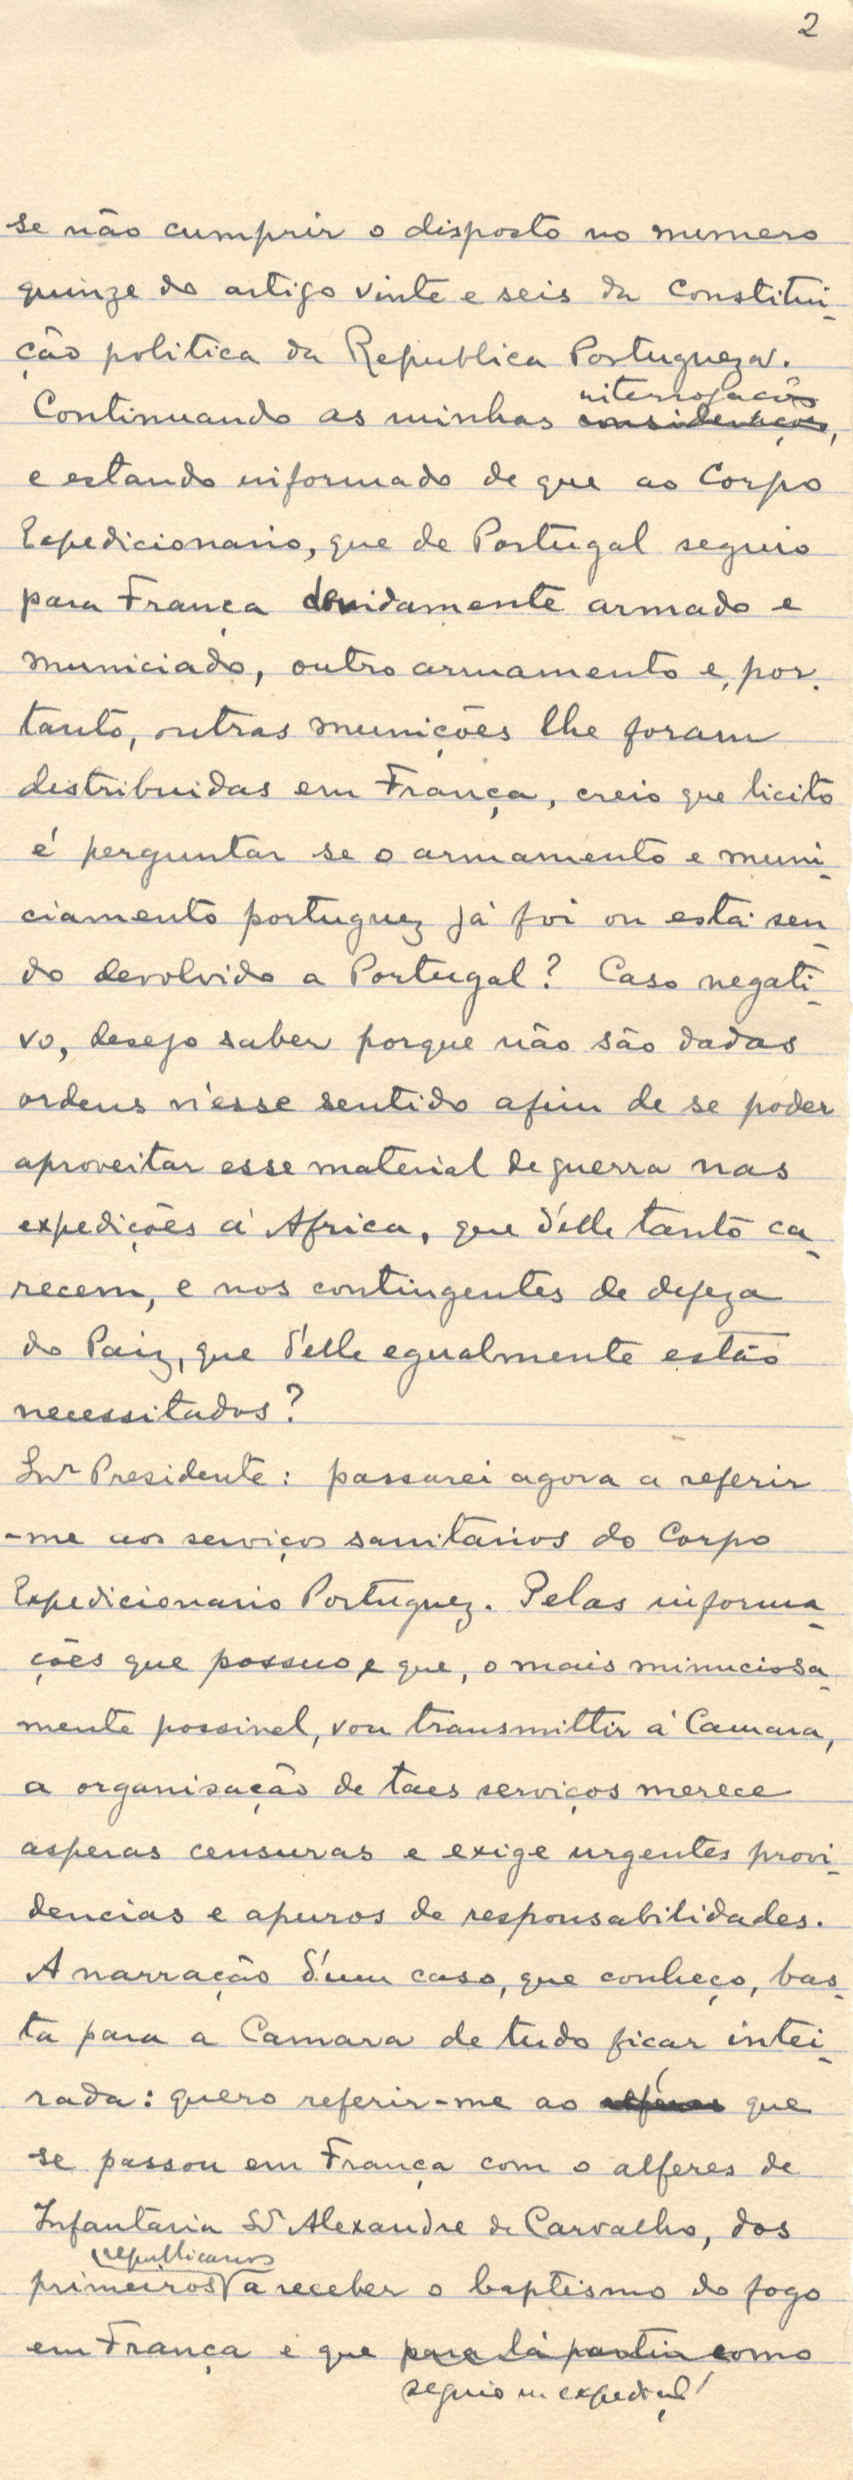 2
se não cumprir o disposto no numero
quinze do artigo vinte e seis da Constitui-
ção politica da Republica Portugueza.
interrogações
Continuando as minhas considerações,
e estando informado de que ao Corpo
Expedicionario, que de Portugal seguio
para França devidamente armado e
municiado, outro armamento e, por-
tanto, outras munições lhe foram
distribuidas em França, creio que licito
é perguntar se o armamento e muni-
ciamento portuguez já foi ou está sen-
do devolvido a Portugal? Caso negati-
vo, desejo saber porque não são dadas
ordens n'esse sentido afim de se poder
aproveitar esse material de guerra nas
expedições á Africa, que d'elle tanto ca-
recem, e nos contingentes de defeza
do Paiz, que d'elle egualmente estão
necessitados?
Snr Presidente: passarei agora a referir
-me aos serviços sanitarios do Corpo
Expedicionario Portuguez. Pelas informa-
ções que possuo e que, o mais minuciosa-
mente possivel, vou transmittir á Camara,
a organisação de taes serviços merece
asperas censuras e exige urgentes provi-
dencias e apuros de responsabilidades.
A narração d'um caso, que conheço, bas-
ta para a Camara de tudo ficar intei-
rada: quero referir-me ao alferes que
se passou em França com o alferes de
Infantaria Sr Alexandre de Carvalho, dos
republicanos
primeiros a receber o baptismo do fogo
em França e que para lá partiu como
seguio